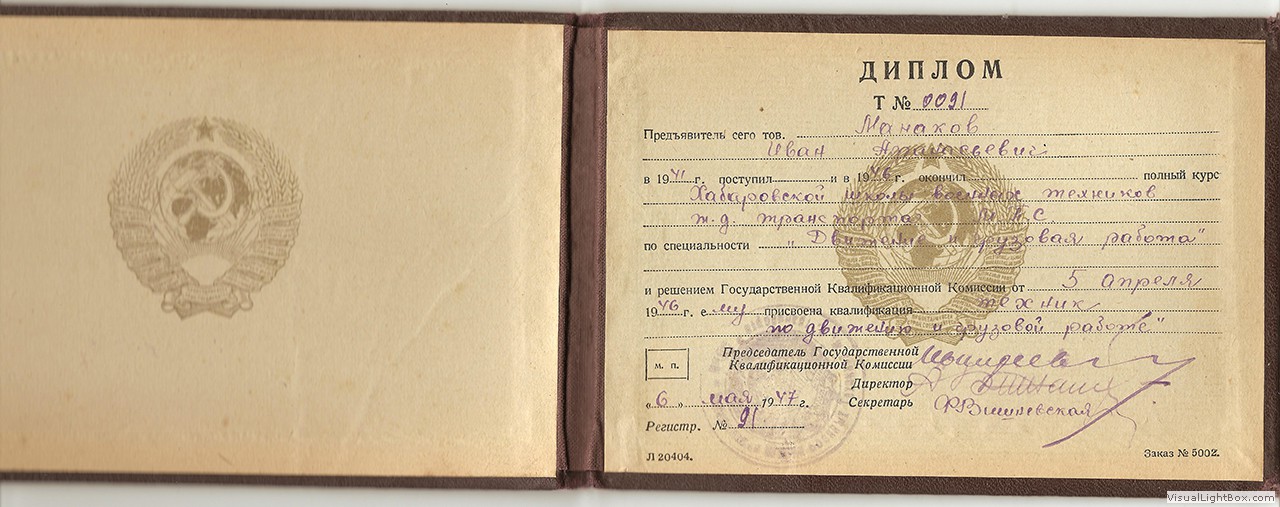 ДИПЛОМ
Т № 0091
Предъявитель сего тов. Манаков
Иван Афанасьевич
в 1941 г. поступил и в 1946 г. окончил полный курс
Хабаровской школы военных техников
ж.д. транспорта М.П.С.
по специальности „Движение и грузовая работа"
и решением Государственной Квалификационной Комиссии от 5 апреля
1946 г. ему присвоена квалификация техник
по движению и грузовой работе"
Председатель Государственной
м. п. Квалификационной Комиссии
Директор
„6" мая 1947 г. Секретарь ФВишневская
Регистр. № 91
Л 20404. Заказ № 5002.
VisualLightBox.com